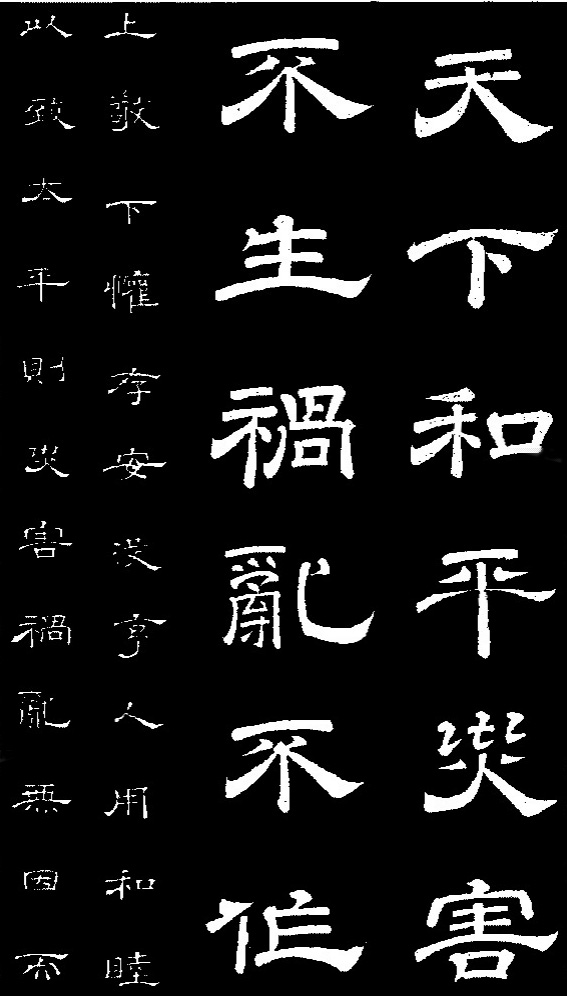 天下和平災害
不生禍亂不作
上敬下懽存安没亨人用和睦
以致太平則災害禍亂無因而